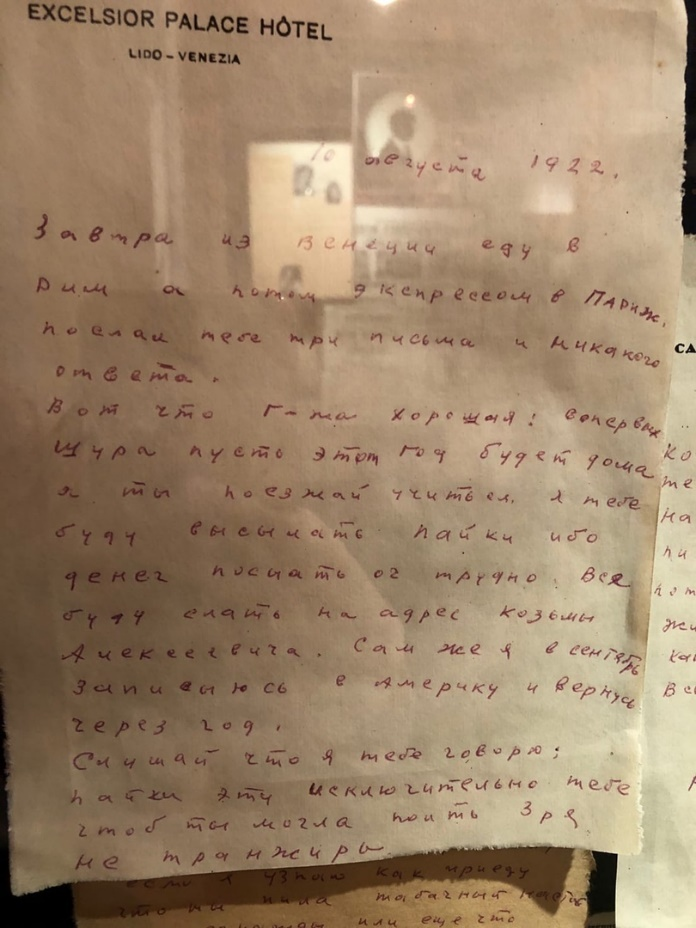 EXCELSIOR PALACE HÔTEL
LIDO – VENEZIA
10 августа 1922.
Завтра из Венеции еду в
Рим а потом экспрессом в Париж.
послал тебе три письма и никакого
ответа.
Вот что Г-жа хорошая: во первых
Шура пусть этот год будет дома
а ты поезжай учиться. Я тебе
буду высылать пайки ибо
денег послать оч трудно. Все
буду слать на адрес козьмы
Алексеевича. Сам же я в сентябрь
в Америку и вернусь
через год.
Слушай что я тебе говорю:
пайки эти исключительно тебе
чтоб ты могла Зря
не транжирь
если я узнаю как приеду
что ты пила табачный настой
или еще что
СА